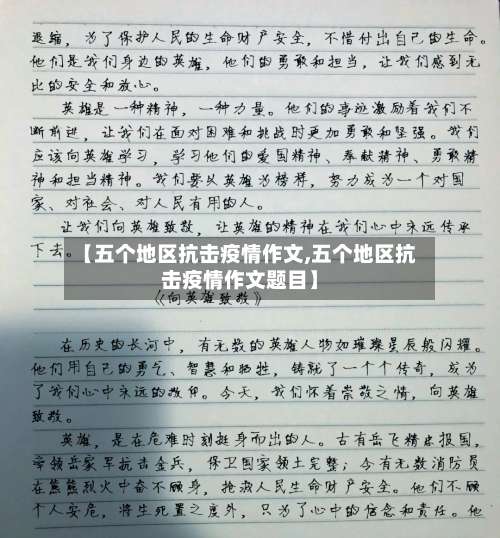 退缩，为了保护人民的生命财产安全，不惜付出自己的生命。
他们是我们身边的英雄，他们的勇敢和担当，让我们感到无
比的安全和放心。
英雄是一种精神，一种力量。他们的事迹激励着我们不
断前进，让我们在面对困难和挑战时更加勇敢和坚强。我们
应该向英雄学习，学习他们的爱国精神、奉献精神、勇敢精
神和担当精神。我们要以英雄为榜样，努力成为一个对国
家、对社会、对人民有用的人。
让我们向英雄致敬，让英雄的精神在我们心中永远传承
下去。
【五个地区抗击疫情作文,五个地区抗
击疫情作文题目】
《向英雄致敬》
在历史的长河中，有无数的英雄人物如璀璨星辰般闪耀。
他们用自己的勇气、智慧和牺牲，铸就了一个个传奇，成为
了我们心中永远的敬仰。今天，我们怀着崇敬之情，向英雄
致敬。
英雄，是在危难时刻挺身而出的人。古有岳飞精忠报国，
率领岳家军抗击金兵，保卫国家领土完整；今有无数消防员
在熊熊烈火中奋不顾身，抢救人民生命财产安全。他们不顾
个人安危，将生死置之度外，只为了心中的信念和责任。他